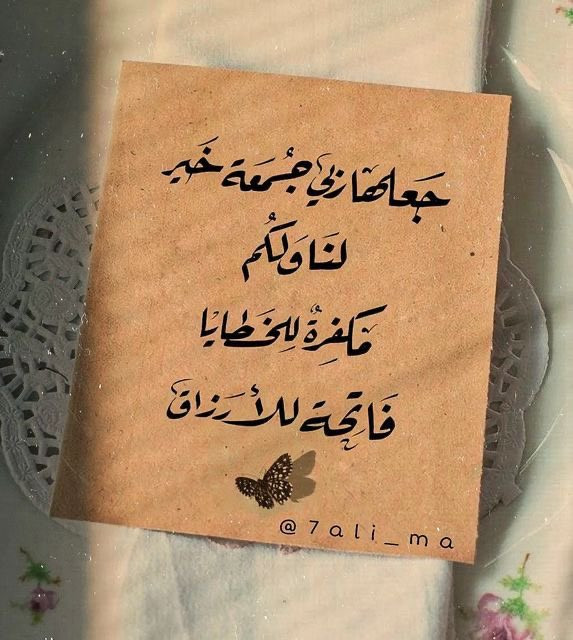 جَعلها ربي جُمعَة خَير
لنَا وَلكُم
مكَفِرةٌ لِلخَطايا
فَاتِحة للأرَزاق
@7ali_ma